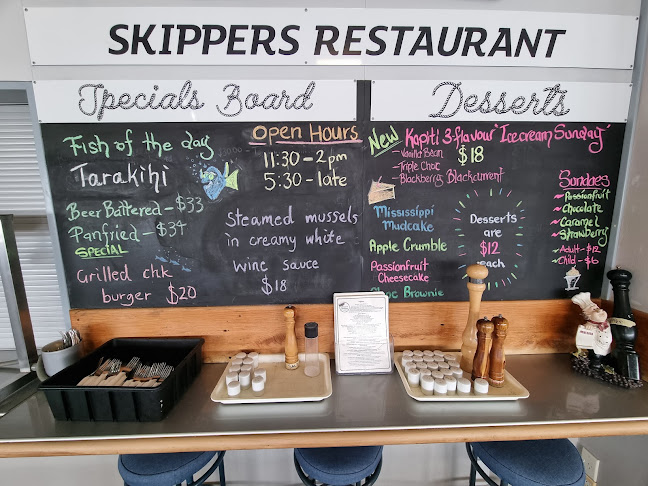 SKIPPERS RESTAURANT
Specials Board
Fish of the day
Tarakihi
Beer Battered - $33
Panfried - $34
SPECIAL
Grilled chk
burger $20
Open Hours
11:30 - 2pm
5:30 - late
Steamed mussels
in creamy white
wine sauce
$18
Desserts
New Kapiti 3-flavour "Icecream Sunday"
- Vanilla Bean
- Triple Choc
- Blackberry Blackcurrent
$18
Mississippi
Mudcake
Apple Crumble
Passionfruit
Cheesecake
Choc Brownie
Desserts
are
$12
each
Sundaes
Passionfruit
Chocolate
Caramel
Strawberry
Adult - $12
Child - $6